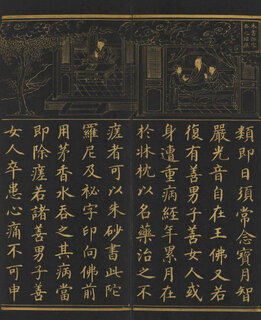 類即日須常念寶月智
嚴光音自在王佛又若
復有善男子善女人或
身遭重病經年累月在
於床枕以名藥治之不
瘥者可以朱砂書此陀
羅尼及祕字印向佛前
用茅香水吞之其病當
即除瘥若諸善男子善
女人卒患心痛不可申